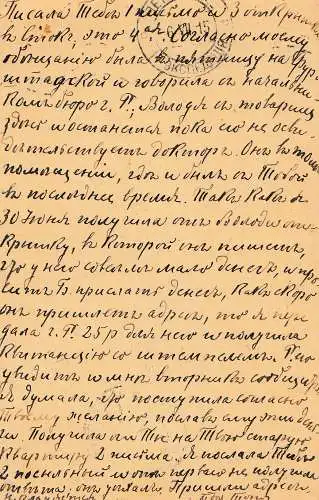 Писала Тебѣ 1 письмо и 3 открытки
въ Спскъ, это 4ая. Согласно моему
обѣщанію была въ пятницу на Гур
штадской и говорила съ начальни
комъ бюро г. П, Володя съ товарищ
здѣсь и останется пока его не осви
дѣтельствуетъ докторъ. Онъ въ томъ
помѣщеніи, гдѣ и былъ съ Тобой
въ послѣднее время. Такъ какъ я
30 Іюня получила отъ Володи от
крытку, въ которой онъ пишетъ,
что у него совсѣмъ мало денегъ, и про
ситъ прислать денегъ, какъ скоро
онъ пришлетъ адресъ, то я пере
дала г. П 25 р для него и получила
квитанцію со штемпелемъ. П его
увидитъ и мнѣ вторникъ сообщитъ
Я думала, что поступила согласно
Твоему желанію, пославъ ему эти день
ги. Получила ли Ты на Твою старую
квартиру 2 письма. Я послала Тебѣ
2 посыльный и отъ перваго не получила
отвѣта, онъ уѣхалъ. Пришли адресъ